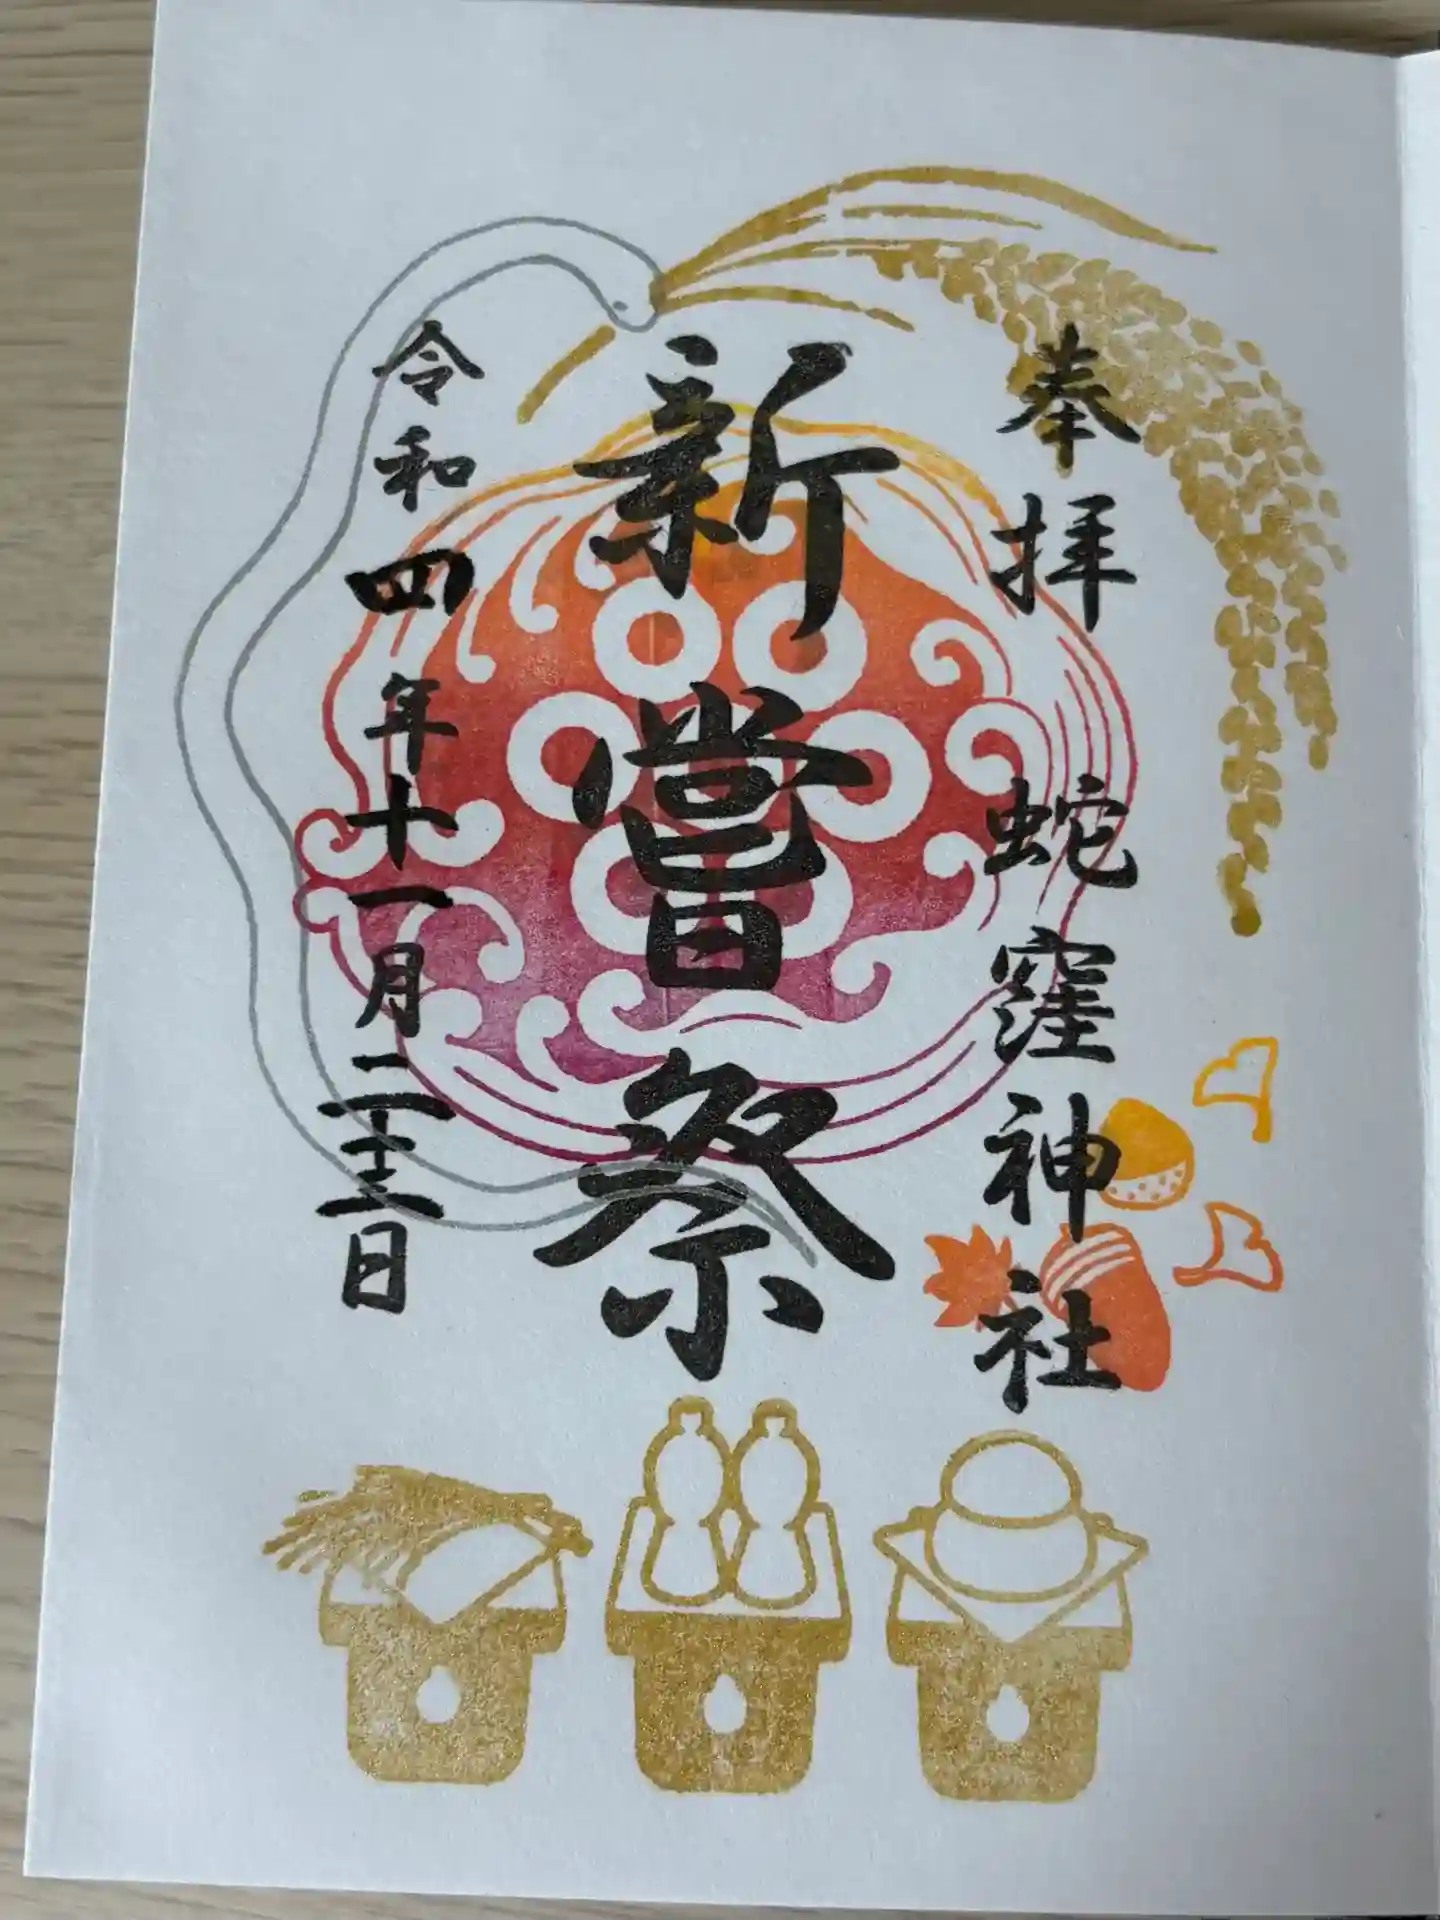 奉拝　蛇窪神社
新嘗祭
令和四年十一月二十三日